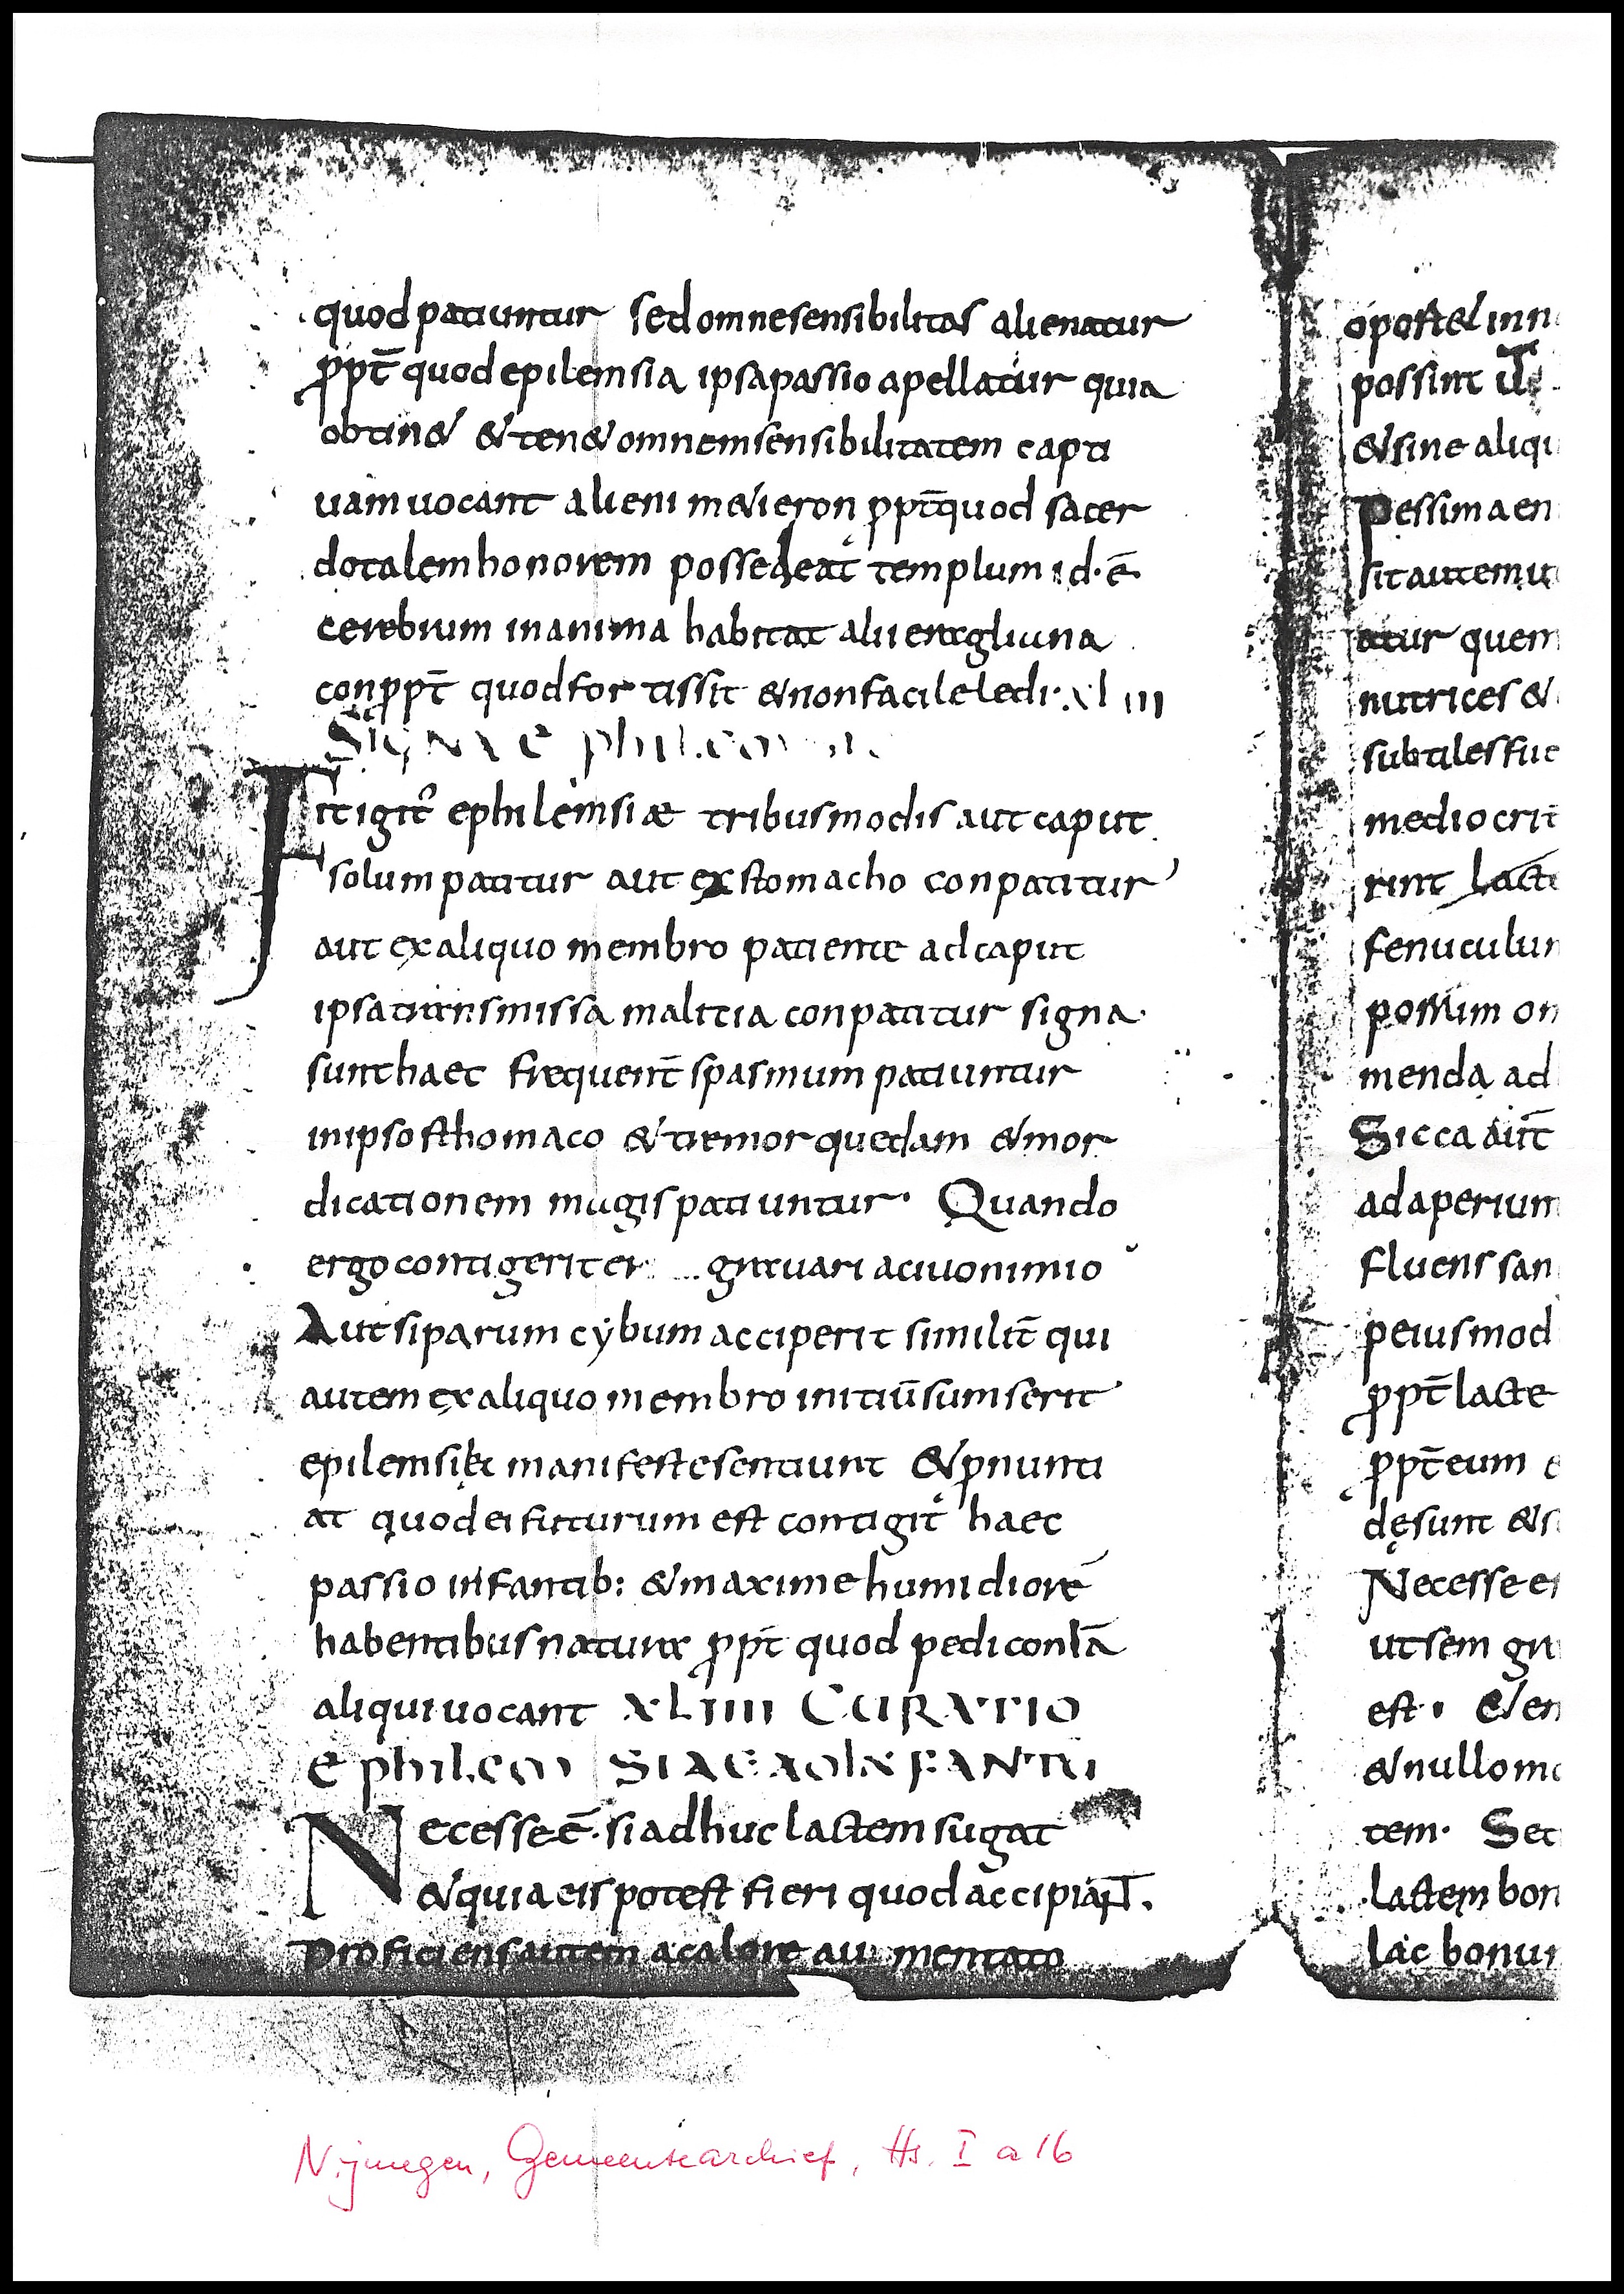 quod patiuntur sed omne sensibilitas alienatur
ꝓpt̄ quod epilemsia ipsa passio apellatur quia
obtin& & ten& omnem sensibilitatem capti
uam uocant alieni m&ieron ꝓpt̄ quod sacer
dotalem honorem possedeat templum id·ē
cerebrum in anima habitat alii
con ꝓpt̄ quod for tissit & non facile ledi· xliii
itigit᷒ ephilemsiæ tribus modis aut caput
solum patitur aut ex stomacho conpatitur
aut ex aliquo membro patiente ad caput
ipsa transmissa malitia conpatitur signa·
sunt haec frequent̄ spasmum patiuntur
in ipso sthomaco & tremor quedam & mor
dicationem magis patiuntur· Quando
ergo contigerit ei grauari aciuo nimio
Aut si parum cybum acciperit similit̄ qui
autem ex aliquo membro initiū sumserit
manifeste sentiunt & pnunti
at quod ei futurum est contigit haec
passio infantib: & maxime humidiorē
habentibus naturæ ꝓpt̄ quod pedi conlā
aliqui uocant XLIIII CURATIO
Necesse ē· si adhuc lactem sugat
& quia eis potest fieri quod accipiant.
Proficiens autem a calore mentato
opost& inn
possint
& sine aliqu
Pessima en
sit autem ut
atur quem
nutrices &
subtiles fue
mediocrit
rint Lacte
fenuculum
possum on
menda ad
Sicca aut̄
ad aperium
fluens san
peius mod
ꝓpt̄ lacte
ꝓpt̄ eum e
desunt & s
Necesse e
ut sem gr
est· & en
& nullo mo
tem· Sec
lactem bon
lac bonum
Nijmegen, Gemeentearchief, Hs. I a 16